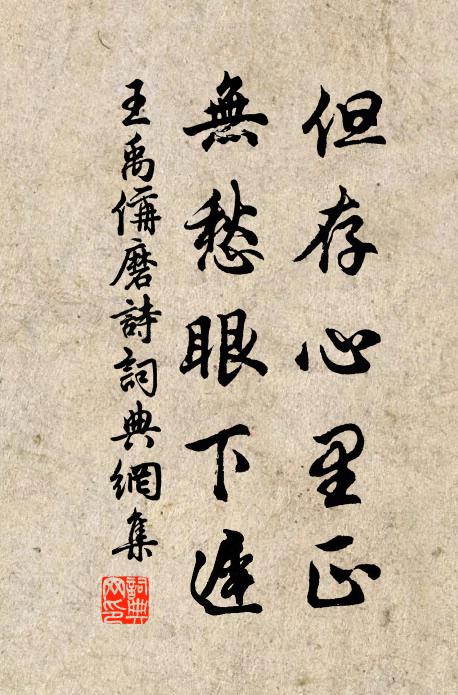 但存心里正
無愁眼下遲
王禹偁磨詩詞典網集
詞典网印